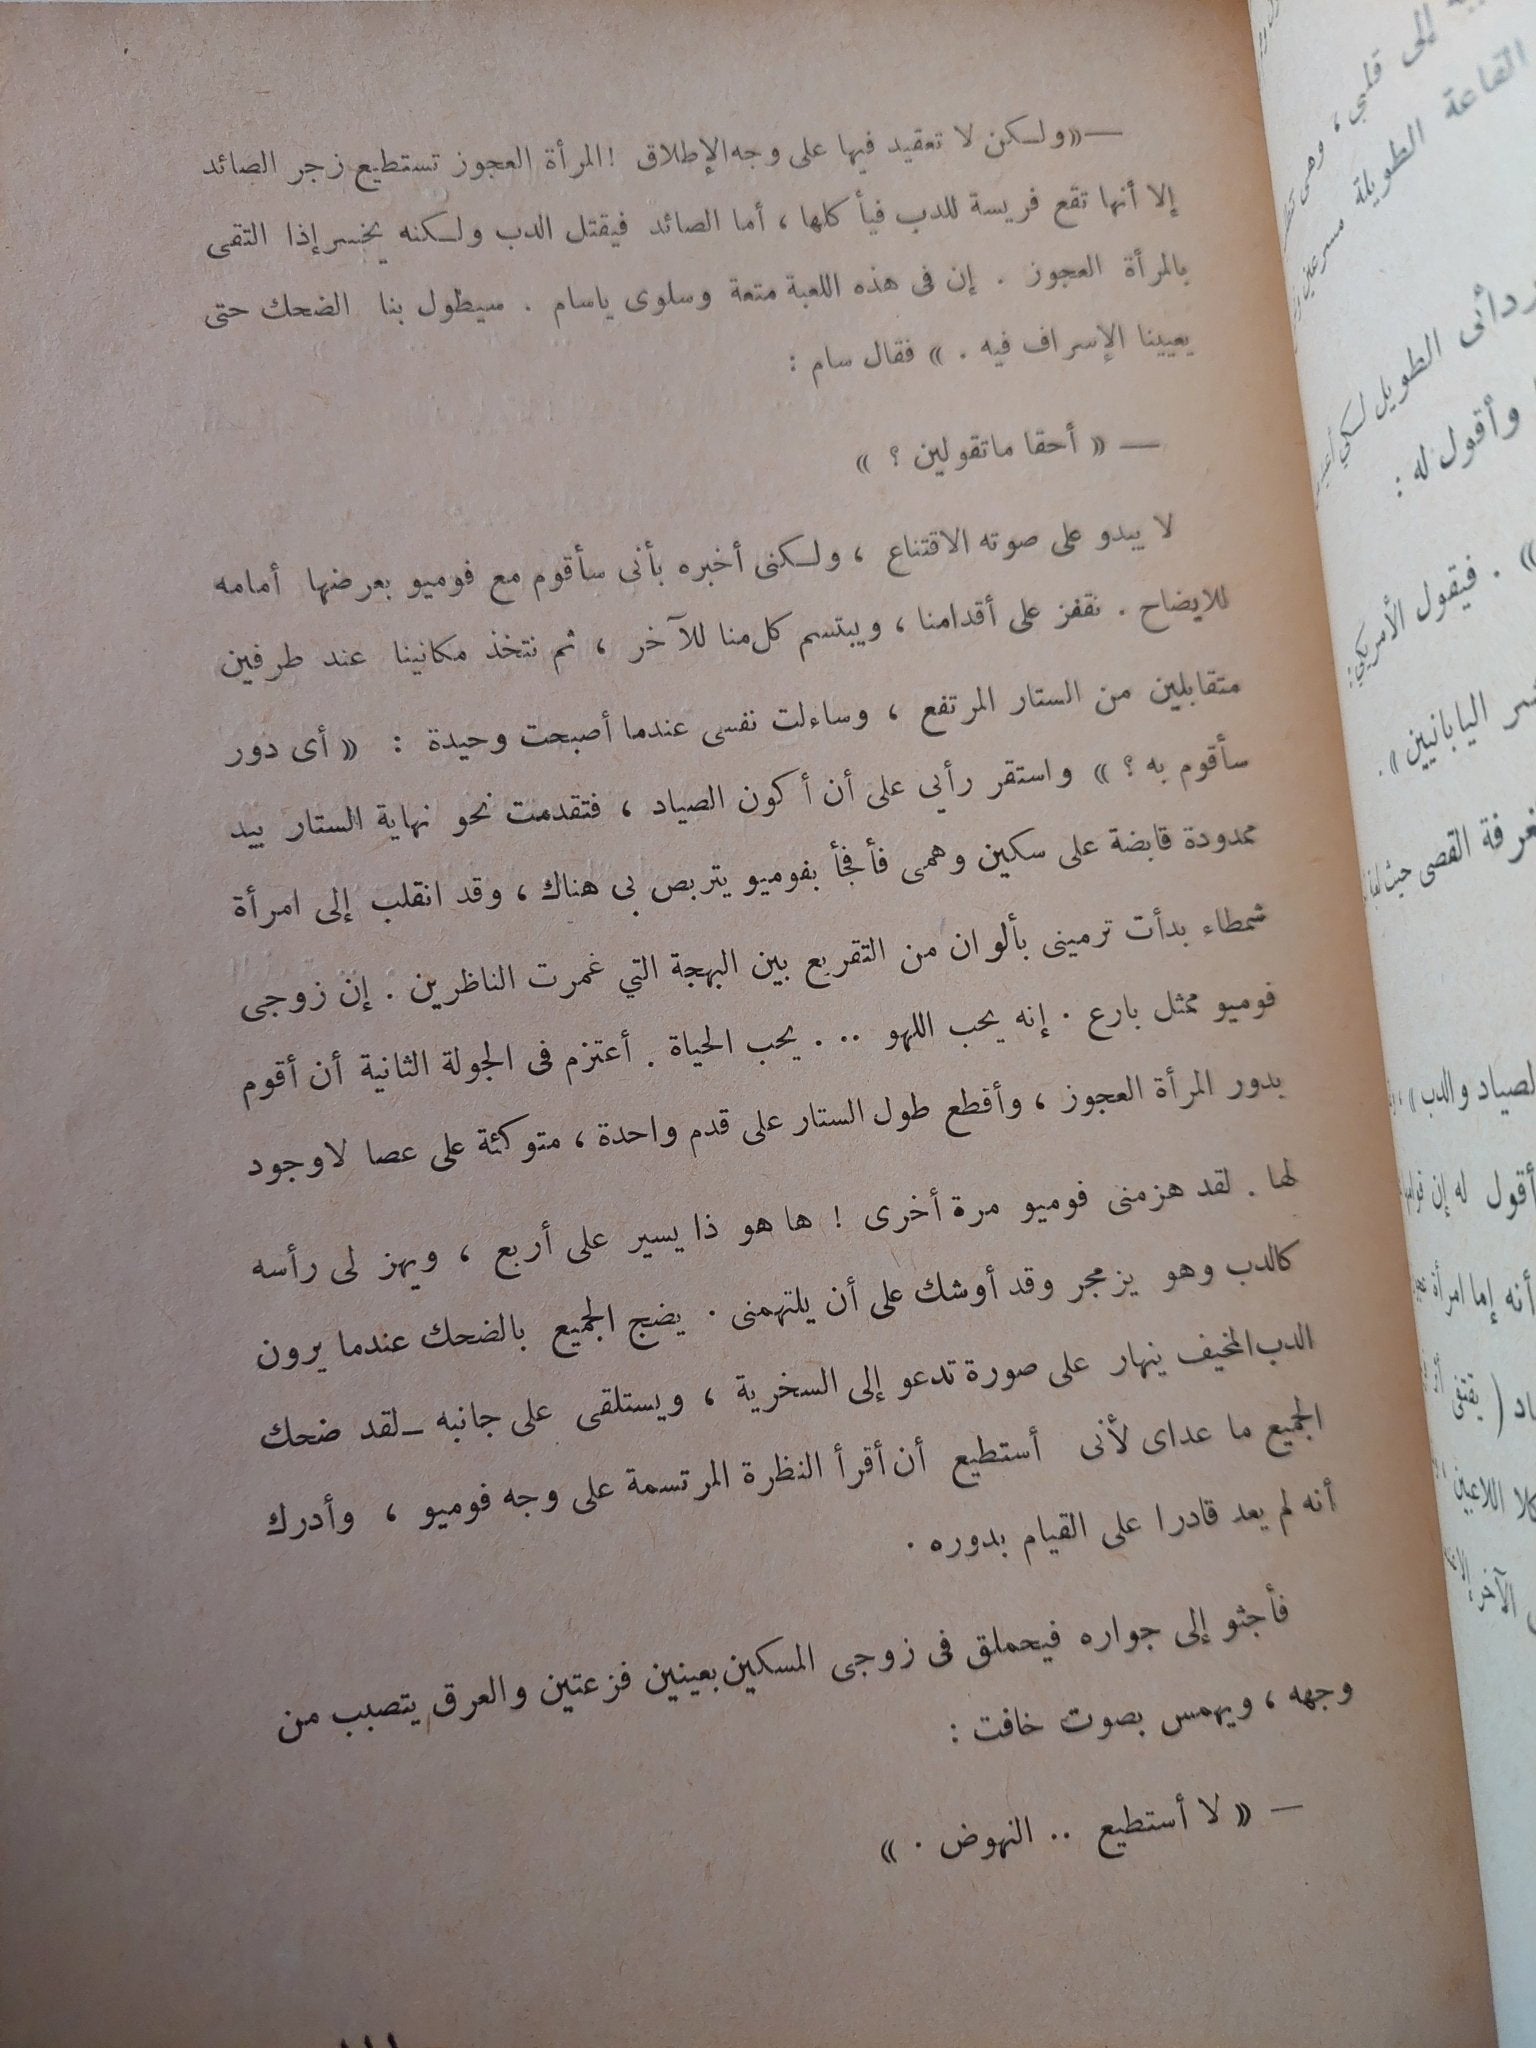 —«ولكن لا تعقيد فيها على وجه الإطلاق ! المرأة العجوز تستطيع زجر الصائد
إلا أنها تقع فريسة للدب فيأكلها ، أما الصائد فيقتل الدب ولكنه يخسر إذا التقى
بالمرأة العجوز . إن فى هذه اللعبة متعة وسلوى ياسام . سيطول بنا الضحك حتى
يعيينا الإسراف فيه . » فقال سام :
— « أحقا ماتقولين ؟ »
لا يبدو على صوته الاقتناع ، ولكنى أخبره بأنى سأقوم مع فوميو بعرضها أمامه
للايضاح . نقفز على أقدامنا ، ويبتسم كل منا للآخر ، ثم نتخذ مكانينا عند طرفين
متقابلين من الستار المرتفع ، وساءلت نفسى عندما أصبحت وحيدة : « أى دور
سأقوم به ؟ » واستقر رأيي على أن أكون الصياد ، فتقدمت نحو نهاية الستار بيد
ممدودة قابضة على سكين وهمى فأفجأ بفوميو يتربص بى هناك ، وقد انقلب إلى امرأة
شمطاء بدأت ترمينى بألوان من التقريع بين البهجة التي غمرت الناظرين . إن زوجى
فوميو ممثل بارع . إنه يحب اللهو .. . يحب الحياة . أعتزم فى الجولة الثانية أن أقوم
بدور المرأة العجوز ، وأقطع طول الستار على قدم واحدة ، متوكئة على عصا لاوجود
لها . لقد هزمنى فوميو مرة أخرى ! ها هو ذا يسير على أربع ، ويهز لى رأسه
كالدب وهو يزمجر وقد أوشك على أن يلتهمنى . يضج الجميع بالضحك عندما يرون
الدب المخيف ينهار على صورة تدعو إلى السخرية ، ويستلقى على جانبه ــ لقد ضحك
الجميع ما عداى لأنى أستطيع أن أقرأ النظرة المرتسمة على وجه فوميو ، وأدرك
أنه لم يعد قادرا على القيام بدوره .
فأجثو إلى جواره فيحملق فى زوجى المسكين بعينين فزعتين والعرق يتصبب من
وجهه ، ويهمس بصوت خافت :
— « لا أستطيع .. النهوض . »
إلى قلبي ، وهى
القاعة الطويلة مسرعين
ردائى الطويل لكي
وأقول له :
» . فيقول الأمريكي :
اليابانيين » .
غرفة القصى حيث
الصياد والدب »
أقول له إن
أنه إما امرأة
( يقتفى
كلا اللاعبين
الآخر